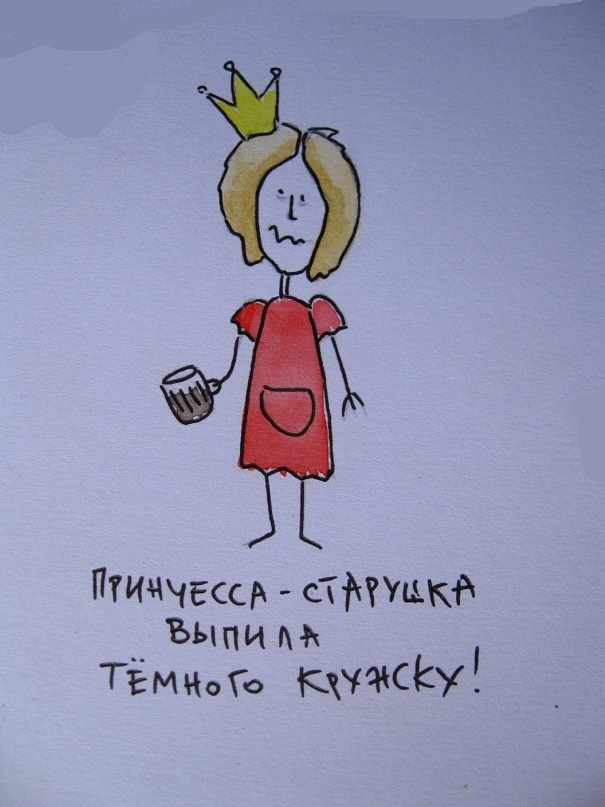 ПРИНЧЕССА - СТАРУШКА
ВЫПИЛА
ТЁМНОГО КРУЖСКУ!